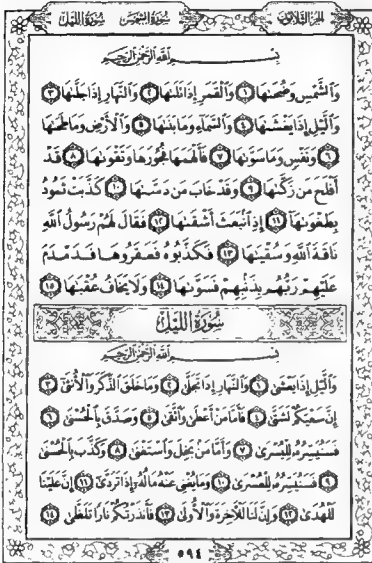 الجزء الثلاثون سورة الشمس سورة الليل
بسم الله الرحمن الرحيم
وَالشَّمْسِ وَضُحَىٰهَا ١ وَالْقَمَرِ إِذَا تَلَىٰهَا ٢ وَالنَّهَارِ إِذَا جَلَّىٰهَا ٣
وَاللَّيْلِ إِذَا يَغْشَىٰهَا ٤ وَالسَّمَاءِ وَمَا بَنَىٰهَا ٥ وَالْأَرْضِ وَمَا طَحَىٰهَا
٦ وَنَفْسٍ وَمَا سَوَّىٰهَا ٧ فَأَلْهَمَهَا فُجُورَهَا وَتَقْوَىٰهَا ٨ قَدْ
أَفْلَحَ مَن زَكَّىٰهَا ٩ وَقَدْ خَابَ مَن دَسَّىٰهَا ١٠ كَذَّبَتْ ثَمُودُ
بِطَغْوَىٰهَا ١١ إِذِ انۢبَعَثَ أَشْقَىٰهَا ١٢ فَقَالَ لَهُمْ رَسُولُ اللَّهِ
نَاقَةَ اللَّهِ وَسُقْيَىٰهَا ١٣ فَكَذَّبُوهُ فَعَقَرُوهَا فَدَمْدَمَ
عَلَيْهِمْ رَبُّهُم بِذَنۢبِهِمْ فَسَوَّىٰهَا ١٤ وَلَا يَخَافُ عُقْبَىٰهَا ١٥
سُورَةُ اللَّيْلِ
بسم الله الرحمن الرحيم
وَاللَّيْلِ إِذَا يَغْشَىٰ ١ وَالنَّهَارِ إِذَا تَجَلَّىٰ ٢ وَمَا خَلَقَ الذَّكَرَ وَالْأُنثَىٰ ٣
إِنَّ سَعْيَكُمْ لَشَتَّىٰ ٤ فَأَمَّا مَنْ أَعْطَىٰ وَاتَّقَىٰ ٥ وَصَدَّقَ بِالْحُسْنَىٰ ٦
فَسَنُيَسِّرُهُ لِلْيُسْرَىٰ ٧ وَأَمَّا مَنۢ بَخِلَ وَاسْتَغْنَىٰ ٨ وَكَذَّبَ بِالْحُسْنَىٰ
٩ فَسَنُيَسِّرُهُ لِلْعُسْرَىٰ ١٠ وَمَا يُغْنِي عَنْهُ مَالُهُ إِذَا تَرَدَّىٰ ١١ إِنَّ عَلَيْنَا
لَلْهُدَىٰ ١٢ وَإِنَّ لَنَا لَلْآخِرَةَ وَالْأُولَىٰ ١٣ فَأَنذَرْتُكُمْ نَارًا تَلَظَّىٰ ١٤
٥٩٤